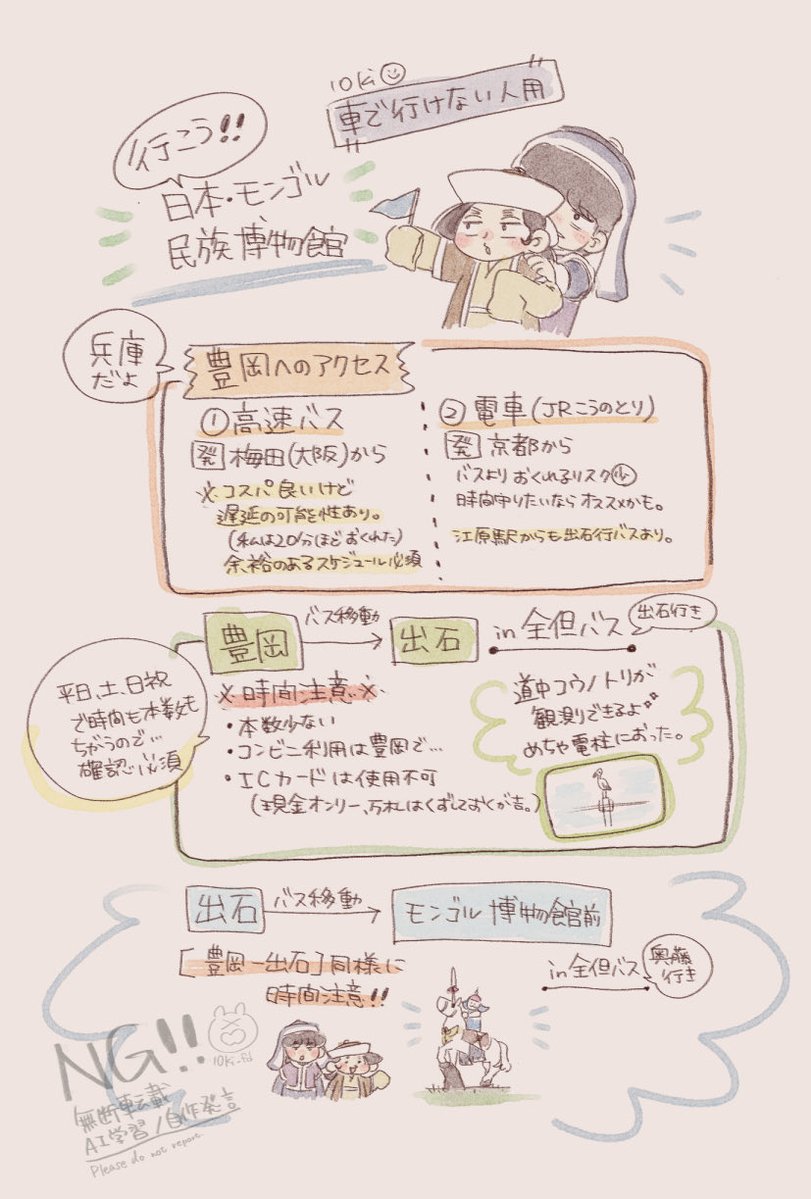 10Ki
車で行けない人用
行こう!!
日本・モンゴル
民族博物館
兵庫
だよ
豊岡へのアクセス
①高速バス
発 梅田(大阪)から
※コスパ良いけど
遅延の可能性あり。
(私は20分ほどおくれた)
余裕のあるスケジュール必須
②電車(JRこうのとり)
発 京都から
バスよりおくれるリスク少
時間守りたいならオススメかも。
江原駅からも出石行バスあり。
豊岡 バス移動 出石 in 全但バス 出石行き
平日、土、日祝
で時間も本数も
ちがうので…
確認必須
※時間注意※
・本数少ない
・コンビニ利用は豊岡で…
・ICカードは使用不可
(現金オンリー、万札はくずしておくが吉。)
道中コウノトリが
観測できるよ
めちゃ電柱におった。
出石 バス移動 モンゴル博物館前
[豊岡-出石]同様に
時間注意!!
in 全但バス 奥藤行き
NG!!
10Ki_fd
無断転載
AI学習/自作発言
Please do not repost.